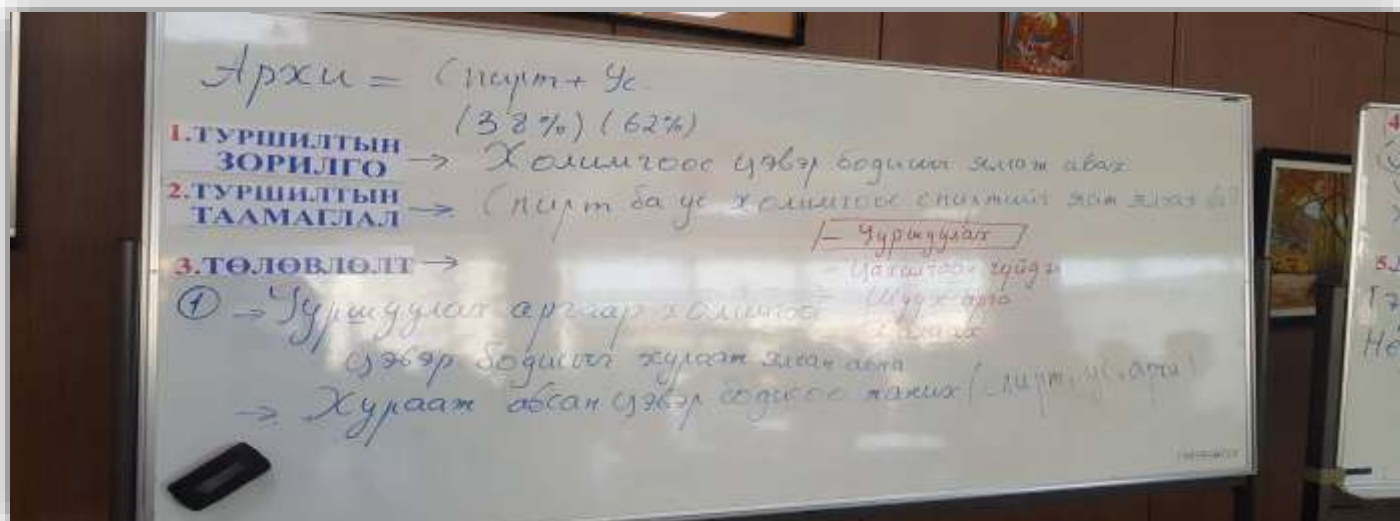 Архи = Спирт + Ус.
(38%) (62%)
1.ТУРШИЛТЫН
ЗОРИЛГО → Холимгоос цэвэр бодисыг ялгаж авах
2.ТУРШИЛТЫН
ТААМАГЛАЛ → Спирт ба ус холимгоос спиртийг яаж ялгах вэ?
- Ууршуулах
3.ТӨЛӨВЛӨЛТ →
Шүүх арга
① → Ууршуулах аргаар холимгоос
цэвэр бодисыг хурааж ялган авна
→ Хурааж авсан цэвэр бодисоо таних (спирт, ус, архи)
4